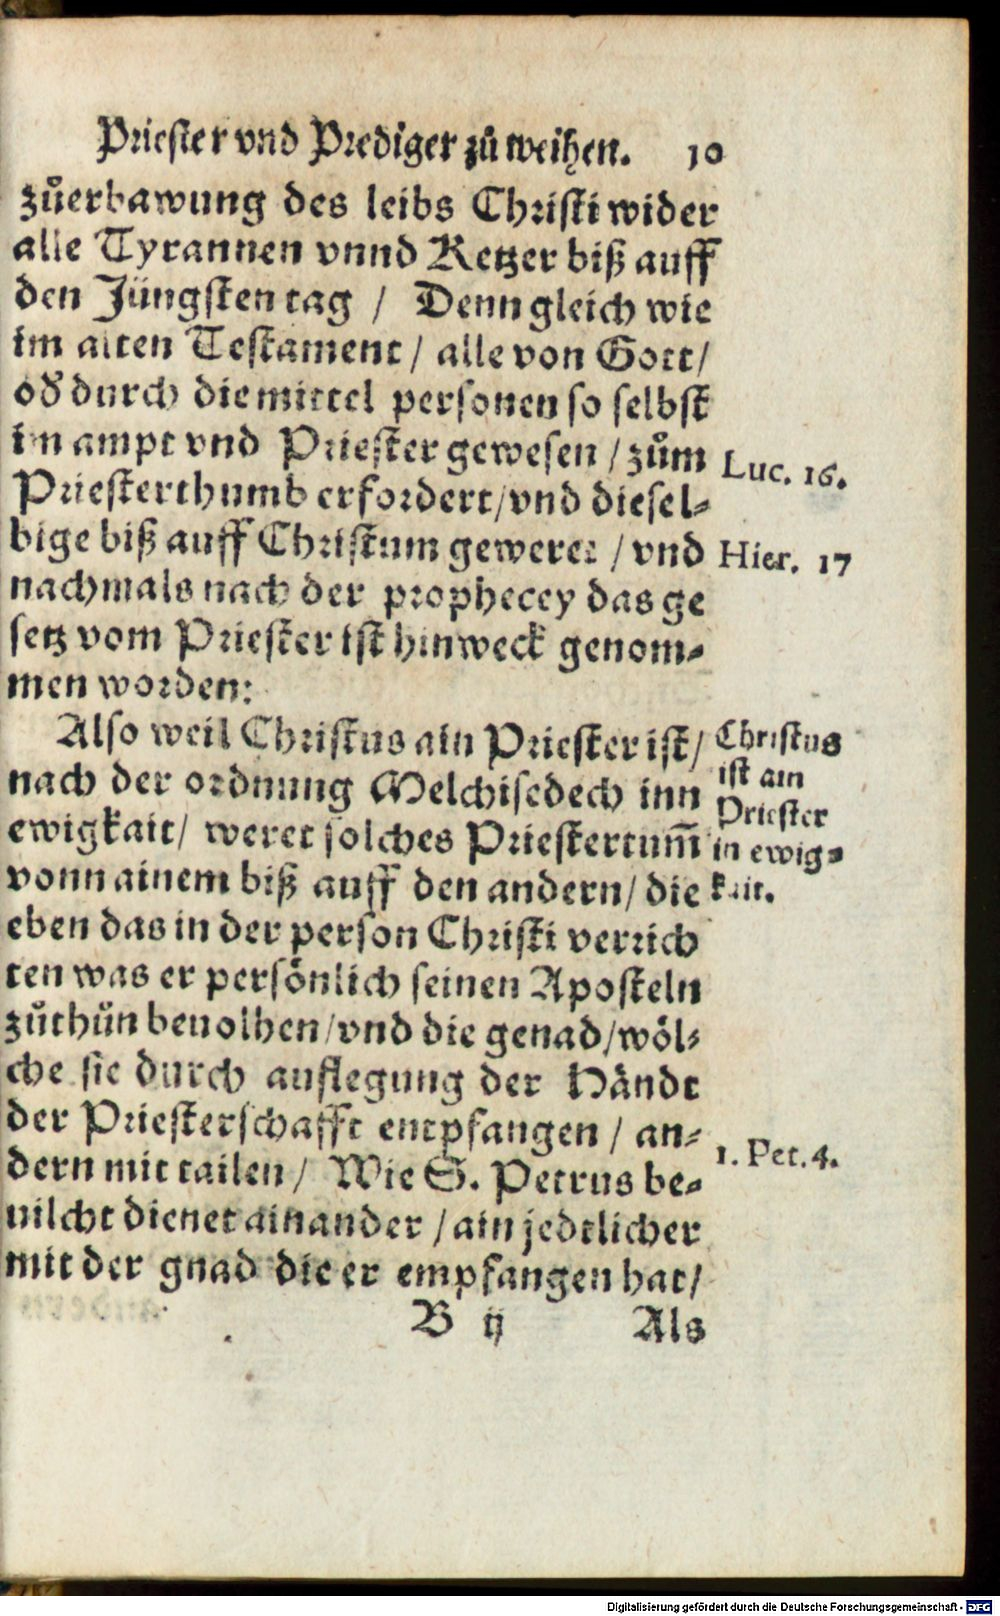 Priester vnd Prediger zů weihen. 10
zůerbawung des leibs Christi wider
alle Tyrannen vnnd Ketzer biß auff
den Jüngsten tag / Denn gleich wie
im alten Testament / alle von Gott /
oď durch die mittel personen so selbst
im ampt vnd Priester gewesen / zům
Luc. 16.
Priesterthumb erfordert / vnd diesel-
bige biß auff Christum geweret / vnd
Hier. 17
nachmals nach der prophecey das ge
setz vom Priester ist hinweck genom-
men worden:
Also weil Christus ain Priester ist /
nach der ordnung Melchisedech inn
ewigkait / weret solches Priestertum̃
vonn ainem biß auff den andern / die
Christus
ist ain
Priester
in ewig-
kait.
eben das in der person Christi verrich
ten was er persönlich seinen Aposteln
zůthůn beuolhen / vnd die genad / wöl-
che sie durch auflegung der Händt
der Priesterschafft entpfangen / an-
1. Pet. 4.
dern mit tailen / Wie S. Petrus be-
uilcht dienet ainander / ain jedtlicher
mit der gnad die er empfangen hat /
B ij Als
Digitalisierung gefördert durch die Deutsche Forschungsgemeinschaft - DFG